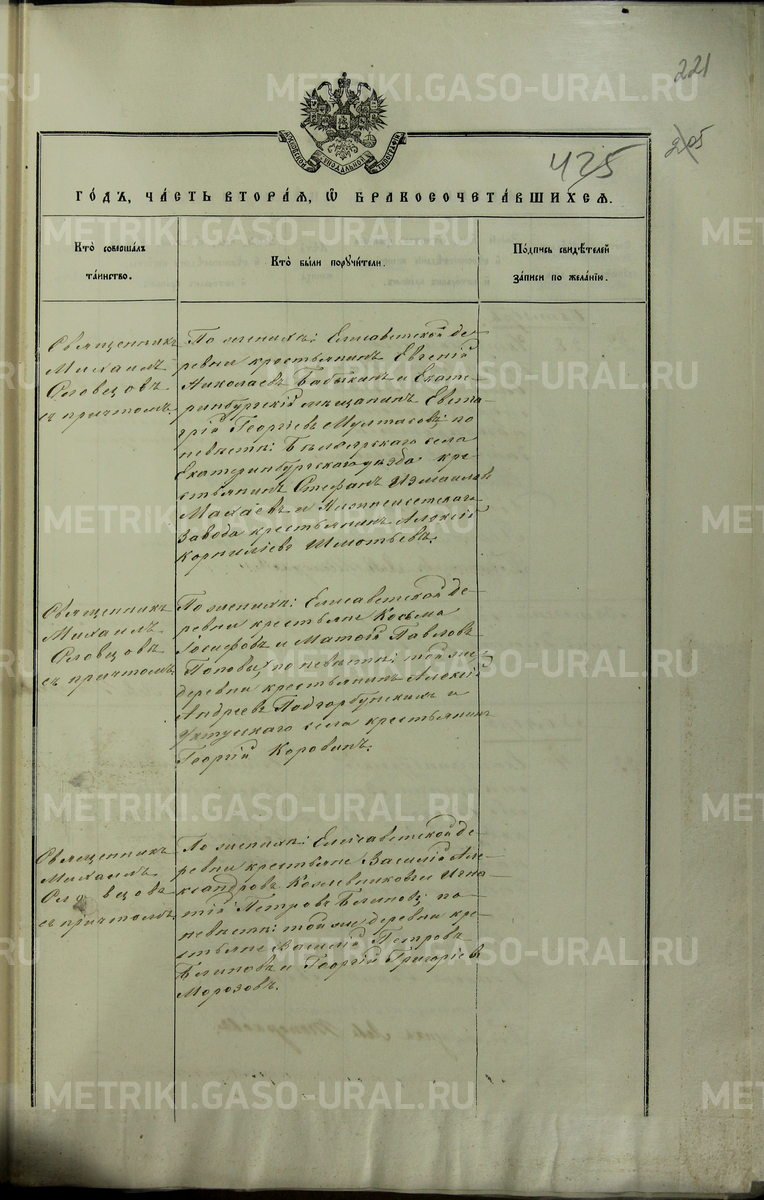 221
205
425
ГОДЪ, ЧАСТЬ ВТОРАЯ, Ѡ БРАКОСОЧЕТАВШИХСЯ.
Кто совершалъ
таинство.
Кто были поручители.
Подпись свидѣтелей
записи по желанію.
Священникъ
Михаилъ
Словцовъ
съ причтомъ.
По женихѣ: Елисаветской де-
ревни крестьянинъ Евгеній
Николаевъ Бабыкинъ и Екате-
ринбургскій мѣщанинъ Евста-
фій Георгіевъ по
невѣстѣ: Бѣлоярскаго села
Екатеринбургскаго уѣзда кре-
стьянинъ Стефанъ Измаиловъ
и Нижнеисетскаго
завода крестьянинъ Алексій
Корниліевъ
Священникъ
Михаилъ
Словцовъ
съ причтомъ.
По женихѣ: Елисаветской де-
ревни крестьяне Косьма
Іосифовъ и Матѳій Павловъ
Поповы, по невѣстѣ: той же
деревни крестьянинъ Алексій
Андреевъ Подгорбунскихъ и
Уктусскаго села крестьянинъ
Георгій Коровинъ.
Священникъ
Михаилъ
Словцовъ
съ причтомъ.
По женихѣ: Елисаветской де-
ревни крестьяне Василій Але-
ксандровъ Кожевниковъ и Игна-
тій Петровъ Блиновъ; по
невѣстѣ: той же деревни кре-
стьяне Василій Петровъ
Блиновъ и Георгій Григоріевъ
Морозовъ.
METRIKI.GASO-URAL.RU